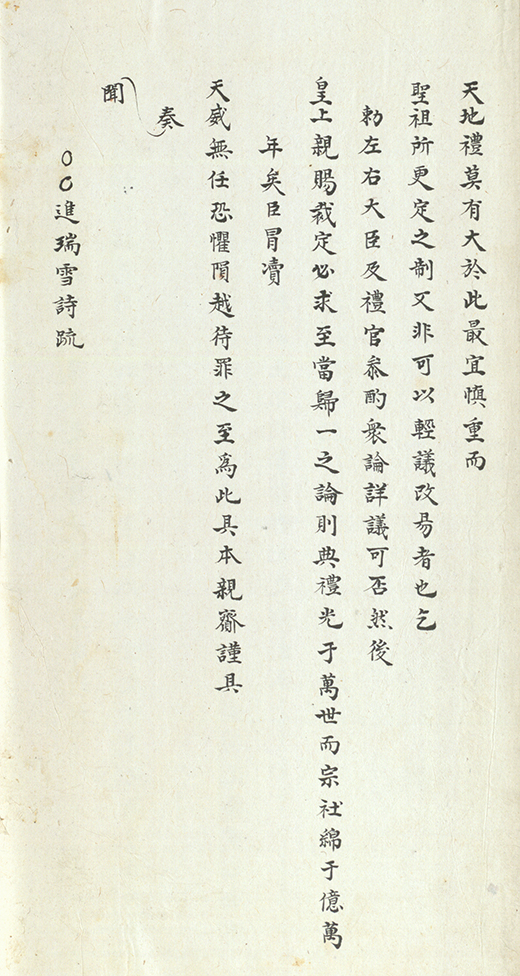 天地禮莫有大於此最宜慎重而
聖祖所更定之制又非可以輕議改易者也乞
勅左右大臣及禮官叅酌衆論詳議可否然後
皇上親賜裁定必求至當歸一之論則典禮光于萬世而宗社綿于億萬
年矣臣冒瀆
天威無任恐懼隕越待罪之至爲此具本親齋謹具
奏
聞
○○進瑞雪詩䟽